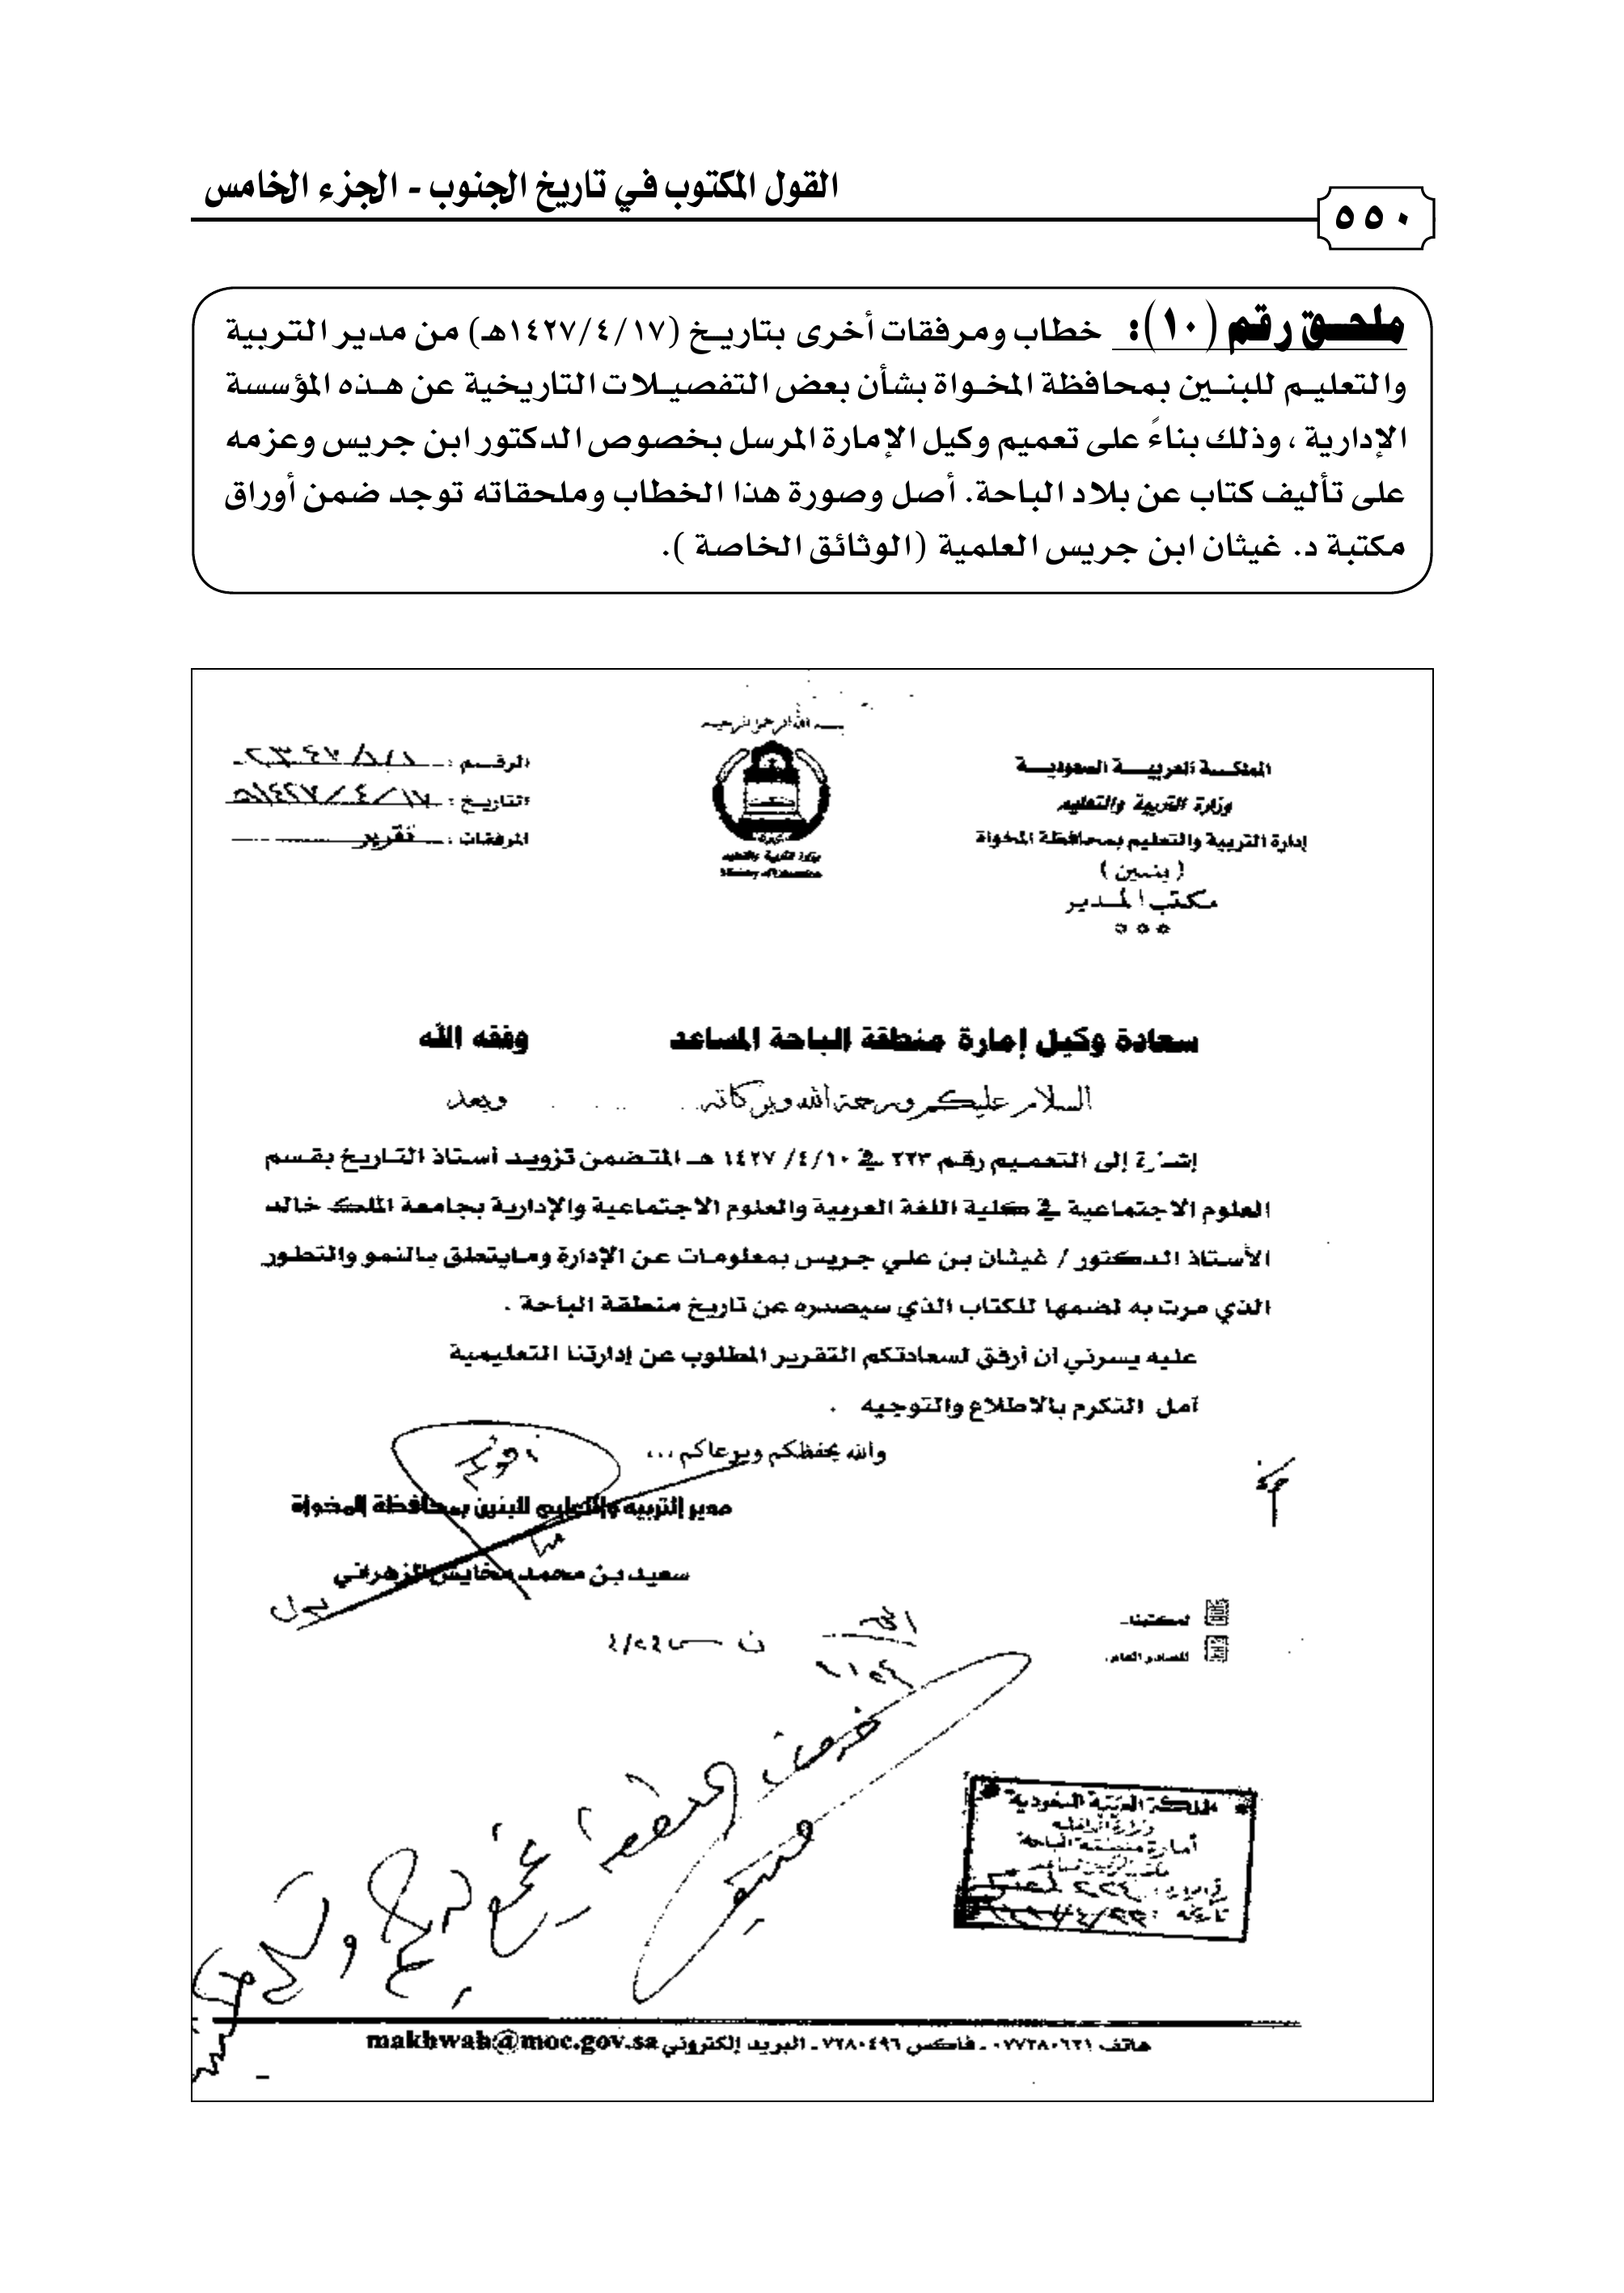 القول المكتوب في تاريخ الجنوب - الجزء الخامس
٥٥٠
ملحق رقم (١٠): خطاب ومرفقات أخرى بتاريخ (١٤٢٧/٤/١٧هـ) من مدير التربية
والتعليم للبنين بمحافظة المخواة بشأن بعض التفصيلات التاريخية عن هذه المؤسسة
الإدارية ، وذلك بناءً على تعميم وكيل الإمارة المرسل بخصوص الدكتور ابن جريس وعزمه
على تأليف كتاب عن بلاد الباحة. أصل وصورة هذا الخطاب وملحقاته توجد ضمن أوراق
مكتبة د. غيثان ابن جريس العلمية (الوثائق الخاصة ).
بسم الله الرحمن الرحيم
المملكة العربية السعودية
وزارة التربية والتعليم
إدارة التربية والتعليم بمحافظة المخواة
( بنين )
مكتب المدير
وزارة التربية والتعليم
Ministry of Education
الرقم :
التاريخ : ١٤٢٧/٤/١٧هـ
المرفقات : تقرير
سعادة وكيل إمارة منطقة الباحة المساعد وفقه الله
السلام عليكم ورحمة الله وبركاته وبعد
إشارة إلى التعميم رقم ٢٢٣ في ١٤٢٧/٤/١٠ هـ المتضمن تزويد أستاذ التاريخ بقسم
العلوم الاجتماعية في كلية اللغة العربية والعلوم الاجتماعية والإدارية بجامعة الملك خالد
الأستاذ الدكتور / غيثان بن علي جريس بمعلومات عن الإدارة ومايتعلق بالنمو والتطور
الذي مرت به لضمها للكتاب الذي سيصدره عن تاريخ منطقة الباحة .
عليه يسرني أن أرفق لسعادتكم التقرير المطلوب عن إدارتنا التعليمية
آمل التكرم بالاطلاع والتوجيه .
والله يحفظكم ويرعاكم ...
مدير التربية والتعليم للبنين بمحافظة المخواة
سعيد بن محمد مخايش الزهراني
لمكتبنا
للصادر العام.
المملكة العربية السعودية
وزارة الداخلية
أمارة منطقة الباحة
هاتف ٠٧٧٢٨٠٦٢١ ـ فاكس ٧٢٨٠٤٩٦ ـ البريد إلكتروني makhwah@moc.gov.sa